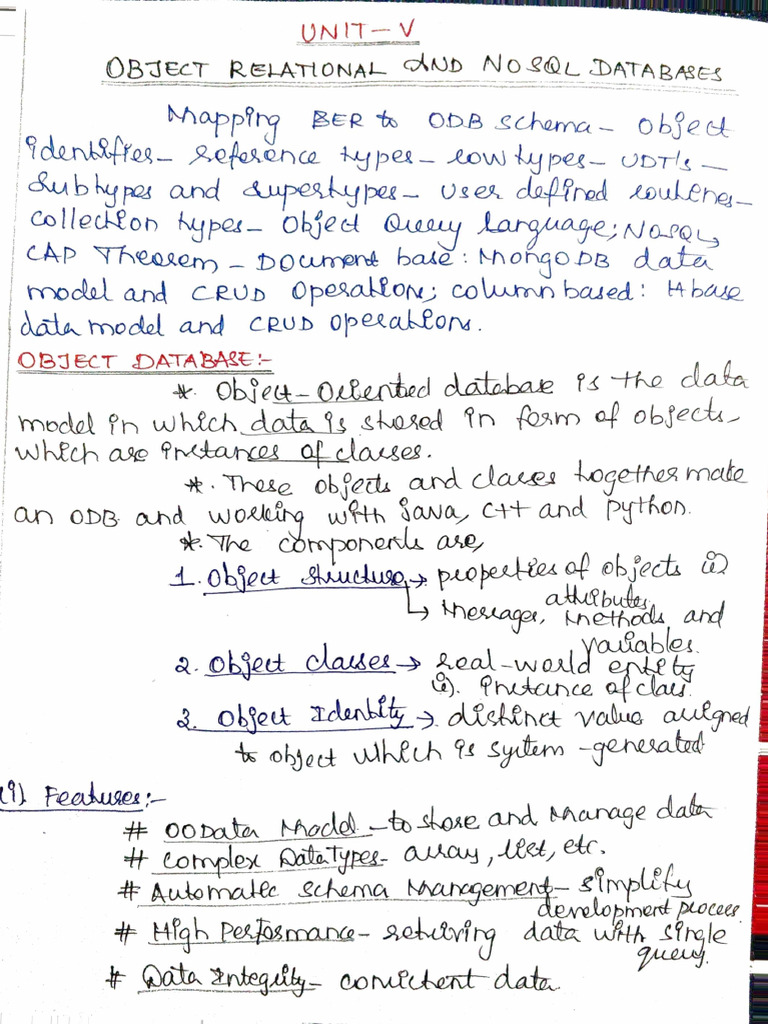 UNIT-V
OBJECT RELATIONAL AND NOSQL DATABASES
Mapping EER to ODB schema - Object
identifies - reference types - row types - UDT's -
Subtypes and supertypes - user defined routines -
collection types - Object Query language; NOSQL,
CAP Theorem - Document base: MongoDB data
model and CRUD Operations; column based: Hbase
data model and CRUD operations.
OBJECT DATABASE:-
*. Object-Oriented database is the data
model in which data is stored in form of objects,
which are instances of classes.
*. These objects and classes together make
an ODB and working with java, C++ and Python.
*. The components are,
1. Object structure → properties of objects (i)
attributes
↳ Messages, methods, and
variables.
2. Object classes → real-world entity
(i). instance of class.
3. Object Identity → distinct value assigned
to object which is system-generated
(i) Features:-
# OOData Model - to store and manage data
# Complex DataTypes - array, list, etc.
# Automatic Schema Management - simplify
development process.
# High Performance - retriving data with single
query.
# Data Integrity - consistent data.